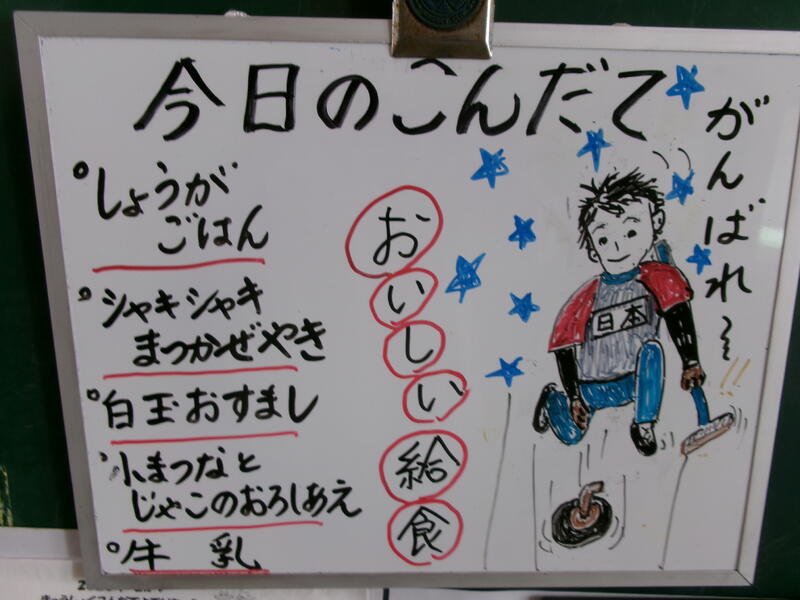 今日のこんだて
しょうが
ごはん
シャキシャキ
まつかぜやき
白玉おすまし
小まつなと
じゃこのおろしあえ
牛乳
おいしい給食
がんばれ〜!!
日本